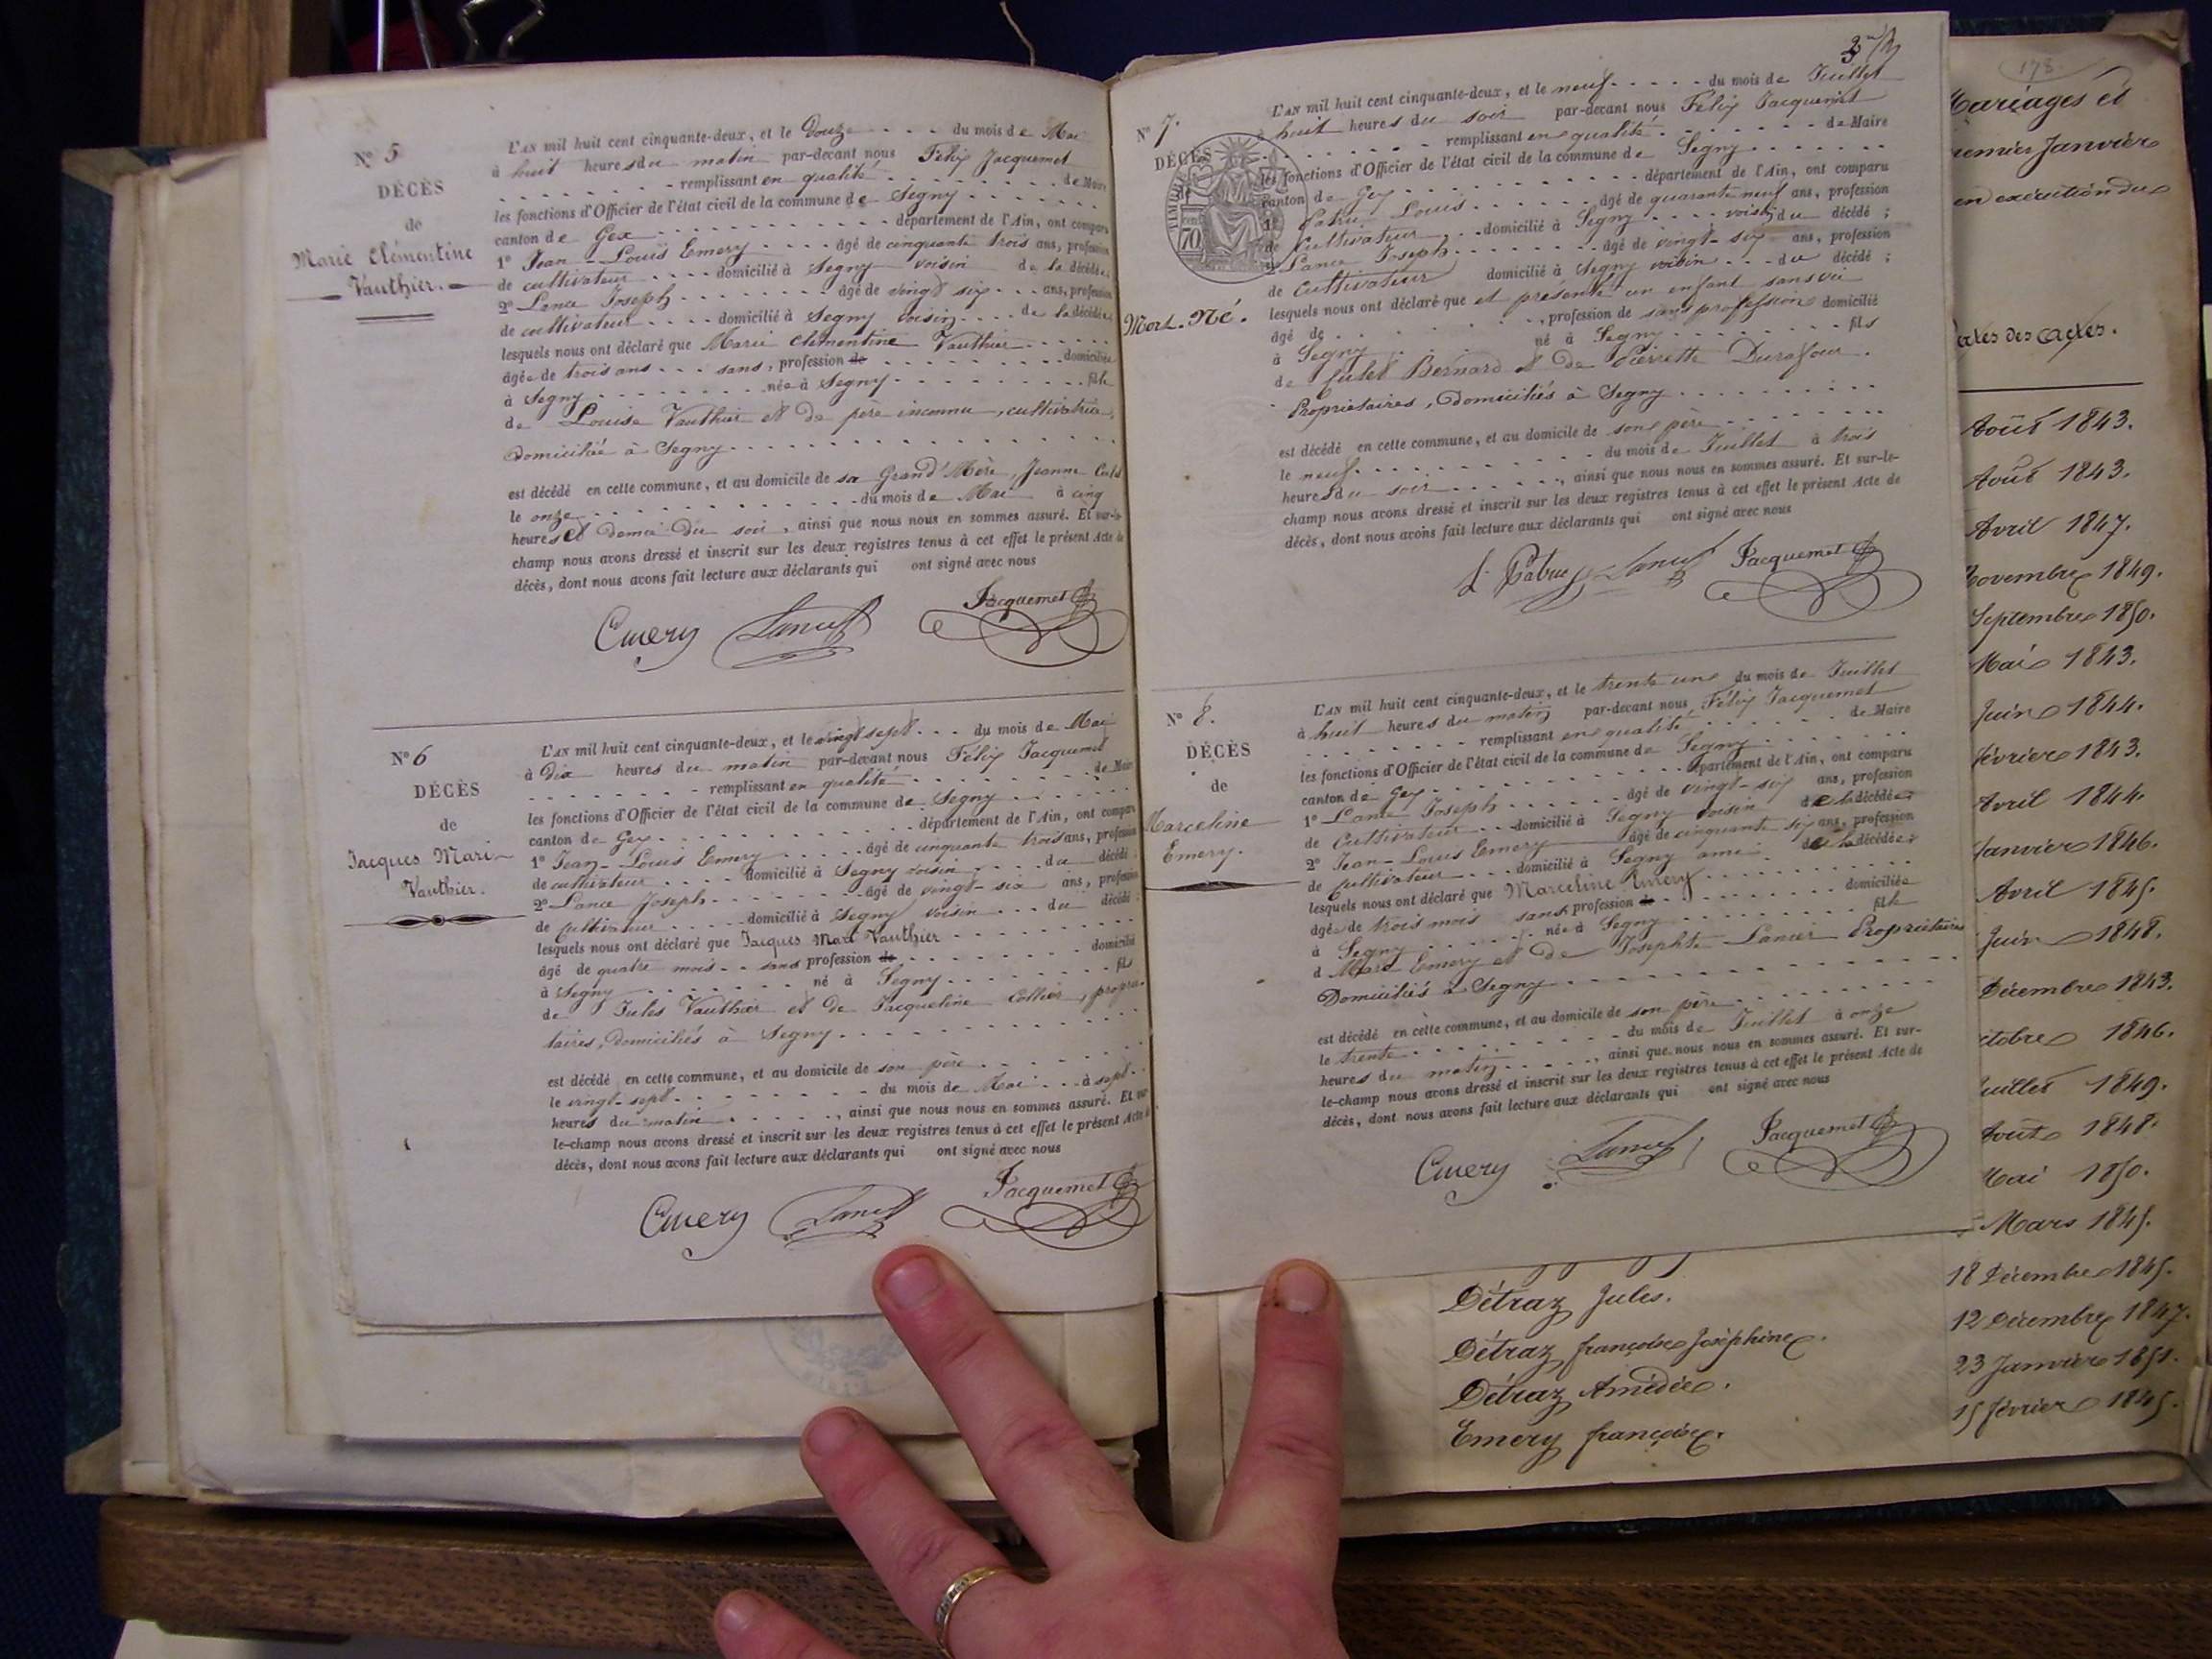 N° 5
DÉCÈS
de
Marie Clémentine
Vauthier.
L'AN mil huit cent cinquante-deux, et le Douze du mois de Mai
à huit heures du matin par-devant nous Félix Jacquemet
remplissant en qualité de Maire
les fonctions d'Officier de l'état civil de la commune de Segny
canton de Gex département de l'Ain, ont comparu
1° Jean-Louis Emery âgé de cinquante trois ans, profession
de cultivateur domicilié à Segny voisin de la décédée
2° Lance Joseph âgé de vingt six ans, profession
de cultivateur domicilié à Segny voisin de la décédée
lesquels nous ont déclaré que Marie Clémentine Vauthier
âgée de trois ans sans, profession de domiciliée
à Segny née à Segny fille
de Louise Vauthier et de père inconnu, cultivatrice,
domiciliée à Segny
est décédé en cette commune, et au domicile de sa Grand'Mère, Jeanne
le onze du mois de Mai à cinq
heures et demie du soir, ainsi que nous nous en sommes assuré. Et sur-le-
champ nous avons dressé et inscrit sur les deux registres tenus à cet effet le présent Acte de
décès, dont nous avons fait lecture aux déclarants qui ont signé avec nous
Emery Lance Jacquemet
N° 6
DÉCÈS
de
Jacques Marie
Vauthier.
L'AN mil huit cent cinquante-deux, et le vingt sept du mois de Mai
à Dix heures du matin par-devant nous Félix Jacquemet
remplissant en qualité de Maire
les fonctions d'Officier de l'état civil de la commune de Segny
canton de Gex département de l'Ain, ont comparu
1° Jean-Louis Emery âgé de cinquante trois ans, profession
de cultivateur domicilié à Segny voisin du décédé
2° Lance Joseph âgé de vingt-six ans, profession
de Cultivateur domicilié à Segny voisin du décédé
lesquels nous ont déclaré que Jacques Mari Vauthier
âgé de quatre mois sans profession de domicilié
à Segny né à Segny fils
de Jules Vauthier et de Jacqueline Collier, proprié-
taires, domiciliés à Segny
est décédé en cette commune, et au domicile de son père
le vingt-sept du mois de Mai à sept
heures du matin, ainsi que nous nous en sommes assuré. Et sur-
le-champ nous avons dressé et inscrit sur les deux registres tenus à cet effet le présent Acte de
décès, dont nous avons fait lecture aux déclarants qui ont signé avec nous
Emery Lance Jacquemet
N° 7.
DÉCÈS
Mort-Né.
L'AN mil huit cent cinquante-deux, et le neuf du mois de Juillet
à huit heures du soir par-devant nous Félix Jacquemet
remplissant en qualité de Maire
les fonctions d'Officier de l'état civil de la commune de Segny
canton de Gex département de l'Ain, ont comparu
1° Patru Louis âgé de quarante neuf ans, profession
de Cultivateur domicilié à Segny voisin du décédé ;
2° Lance Joseph âgé de vingt-six ans, profession
de Cultivateur domicilié à Segny voisin du décédé ;
lesquels nous ont déclaré que et présenté un enfant sans vie
âgé de, profession de sans profession domicilié
à Segny né à Segny fils
de Bernard et de Pierrette Durafour.
Propriétaires, domiciliés à Segny
est décédé en cette commune, et au domicile de son père
le neuf du mois de Juillet à trois
heures du soir, ainsi que nous nous en sommes assuré. Et sur-le-
champ nous avons dressé et inscrit sur les deux registres tenus à cet effet le présent Acte de
décès, dont nous avons fait lecture aux déclarants qui ont signé avec nous
L. Patru Lance Jacquemet
N° 8.
DÉCÈS
de
Marceline
Emery.
L'AN mil huit cent cinquante-deux, et le trente un du mois de Juillet
à huit heures du matin par-devant nous Félix Jacquemet
remplissant en qualité de Maire
les fonctions d'Officier de l'état civil de la commune de Segny
canton de Gex département de l'Ain, ont comparu
1° Lance Joseph âgé de vingt-six ans, profession
de Cultivateur domicilié à Segny voisin de la décédée
2° Jean-Louis Emery âgé de cinquante six ans, profession
de Cultivateur domicilié à Segny ami de la décédée
lesquels nous ont déclaré que Marceline Emery
âgée de trois mois sans profession de domiciliée
à Segny née à Segny fille
d Marc Emery et de Josephte Lancier Propriétaires
Domiciliés à Segny
est décédé en cette commune, et au domicile de son père
le trente du mois de Juillet à onze
heures du matin, ainsi que nous nous en sommes assuré. Et sur-
le-champ nous avons dressé et inscrit sur les deux registres tenus à cet effet le présent Acte de
décès, dont nous avons fait lecture aux déclarants qui ont signé avec nous
Emery Lance Jacquemet
178
Mariages et
premier Janvier
en exécution du
dates des actes.
Août 1843.
Août 1843.
Avril 1847.
Novembre 1849.
Septembre 1850.
Mai 1843.
Juin 1844.
février 1843.
Avril 1844.
Janvier 1846.
Avril 1845.
Juin 1848.
Décembre 1843.
Octobre 1846.
Juillet 1849.
Août 1848.
Mai 1850.
Mars 1845.
18 Décembre 1845.
Détraz Jules. 12 Décembre 1847.
Détraz françoise Joséphine. 23 Janvier 1851.
Détraz Amédée. 15 février 1845.
Emery françoise.